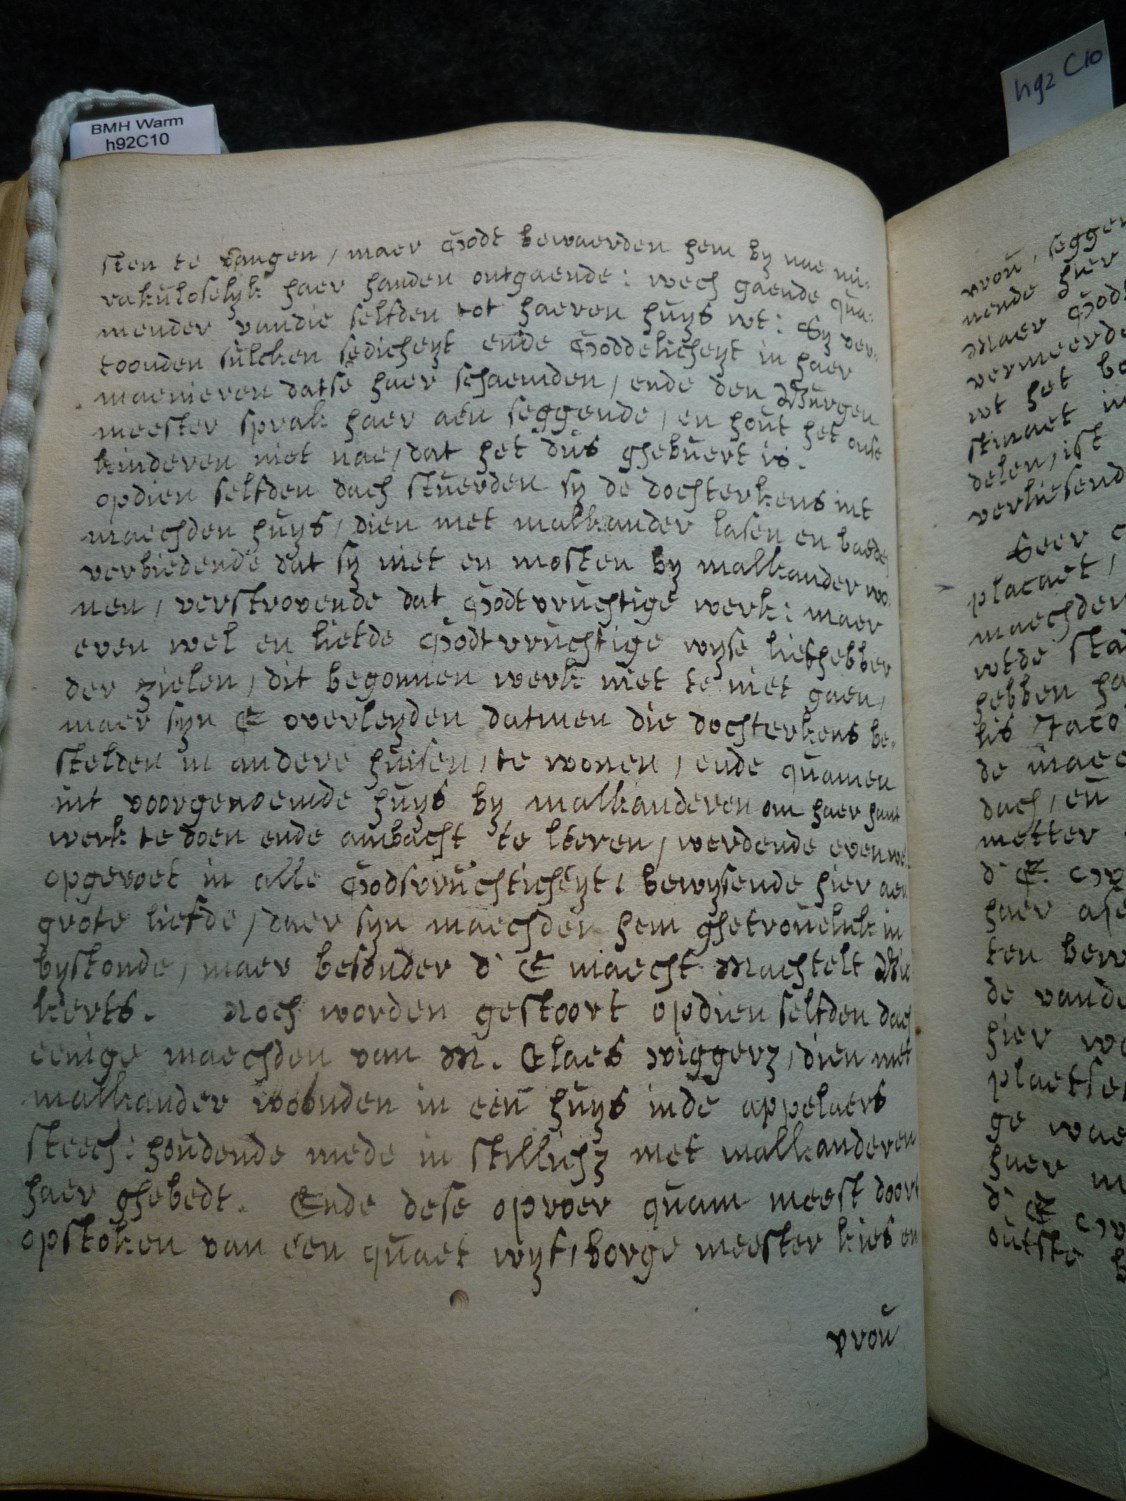 BMH Warm
h92C10
h92 C10
sten te vangen / maer Godt bewaerden hem by nae mi-
rakuloselyk haer handen ontgaende: wech gaende qua-
mender vandie selfden tot haeren huys wt: Sy ver-
toonden sulcken sedicheyt ende Goddelicheyt in haer
maenieren datse haer schaemden / ende den Burgen
meester sprak haer aen seggende / en hout het onse
kinderen niet nae / dat het dus ghebuert is.
opdien selfden dach stuerden sy de dochterkens int
maechden huys / dien met malkander lasen en baede
verbiedende dat sy niet en mosten by malkander wo-
nen / verstroyende dat Godtvruchtige werk: maer
even wel en liefde Godtvruchtige wyse liefhebber
der zielen / dit begonnen werk niet te niet gaen /
maer syn E overleyden datmen die dochterkens be-
stelden in andere huisen / te wonen / ende quamen
int voorgenoemde huys by malkanderen om haer hant
werk te doen ende ambacht te leeren / werdende evenwel
opgevoet in alle Godsvruchticheyt / bewysende hier aen
grote liefde / daer syn maechden hem ghetrouelick in
bystonde / maer besonder d' E maecht Machtelt Bic
kerts. Noch worden gestoort opdien selfden dach
eenige maechden van M. Claes Wiggerz / dien met
malkander woonden in een huys inde appelaers
steech: houdende mede in stillichz met malkanderen
haer ghebedt. Ende dese oproer quam meest door
opstoken van een quaet wyf / borge meester kies en
vrou
vrou, seggen
nende hier
Maer Godt
vermeerde
wt het
stmaet in
delen, ist
verliesend
Seer
placaet /
maechden
wtde sta
hebben
lis Jaco
de maec
dach / en
metter
d' E.
haer
ten bew
de vande
hier
plaetse
ge
haer
d' E
outste